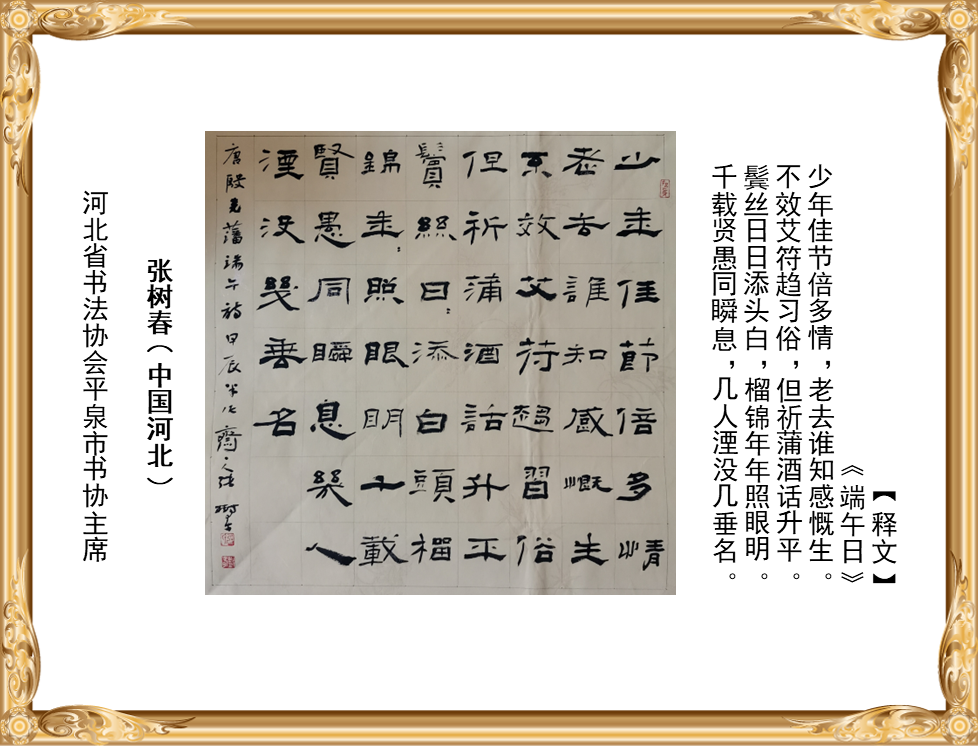 【释文】
《端午日》
少年佳节倍多情，老去谁知感慨生。
不效艾符趋习俗，但祈蒲酒话升平。
鬓丝日日添头白，榴锦年年照眼明。
千载贤愚同瞬息，几人湮没几垂名。
少年佳節倍多情
老去誰知感慨生
不效艾符趨習俗
但祈蒲酒話升平
鬢絲日：添白頭榴
錦年：照眼明千載
賢愚同瞬息幾人
湮没幾垂名
唐殷尭藩端午詩甲辰半化齋人張樹春
张树春（中国河北）
河北省书法协会平泉市书协主席